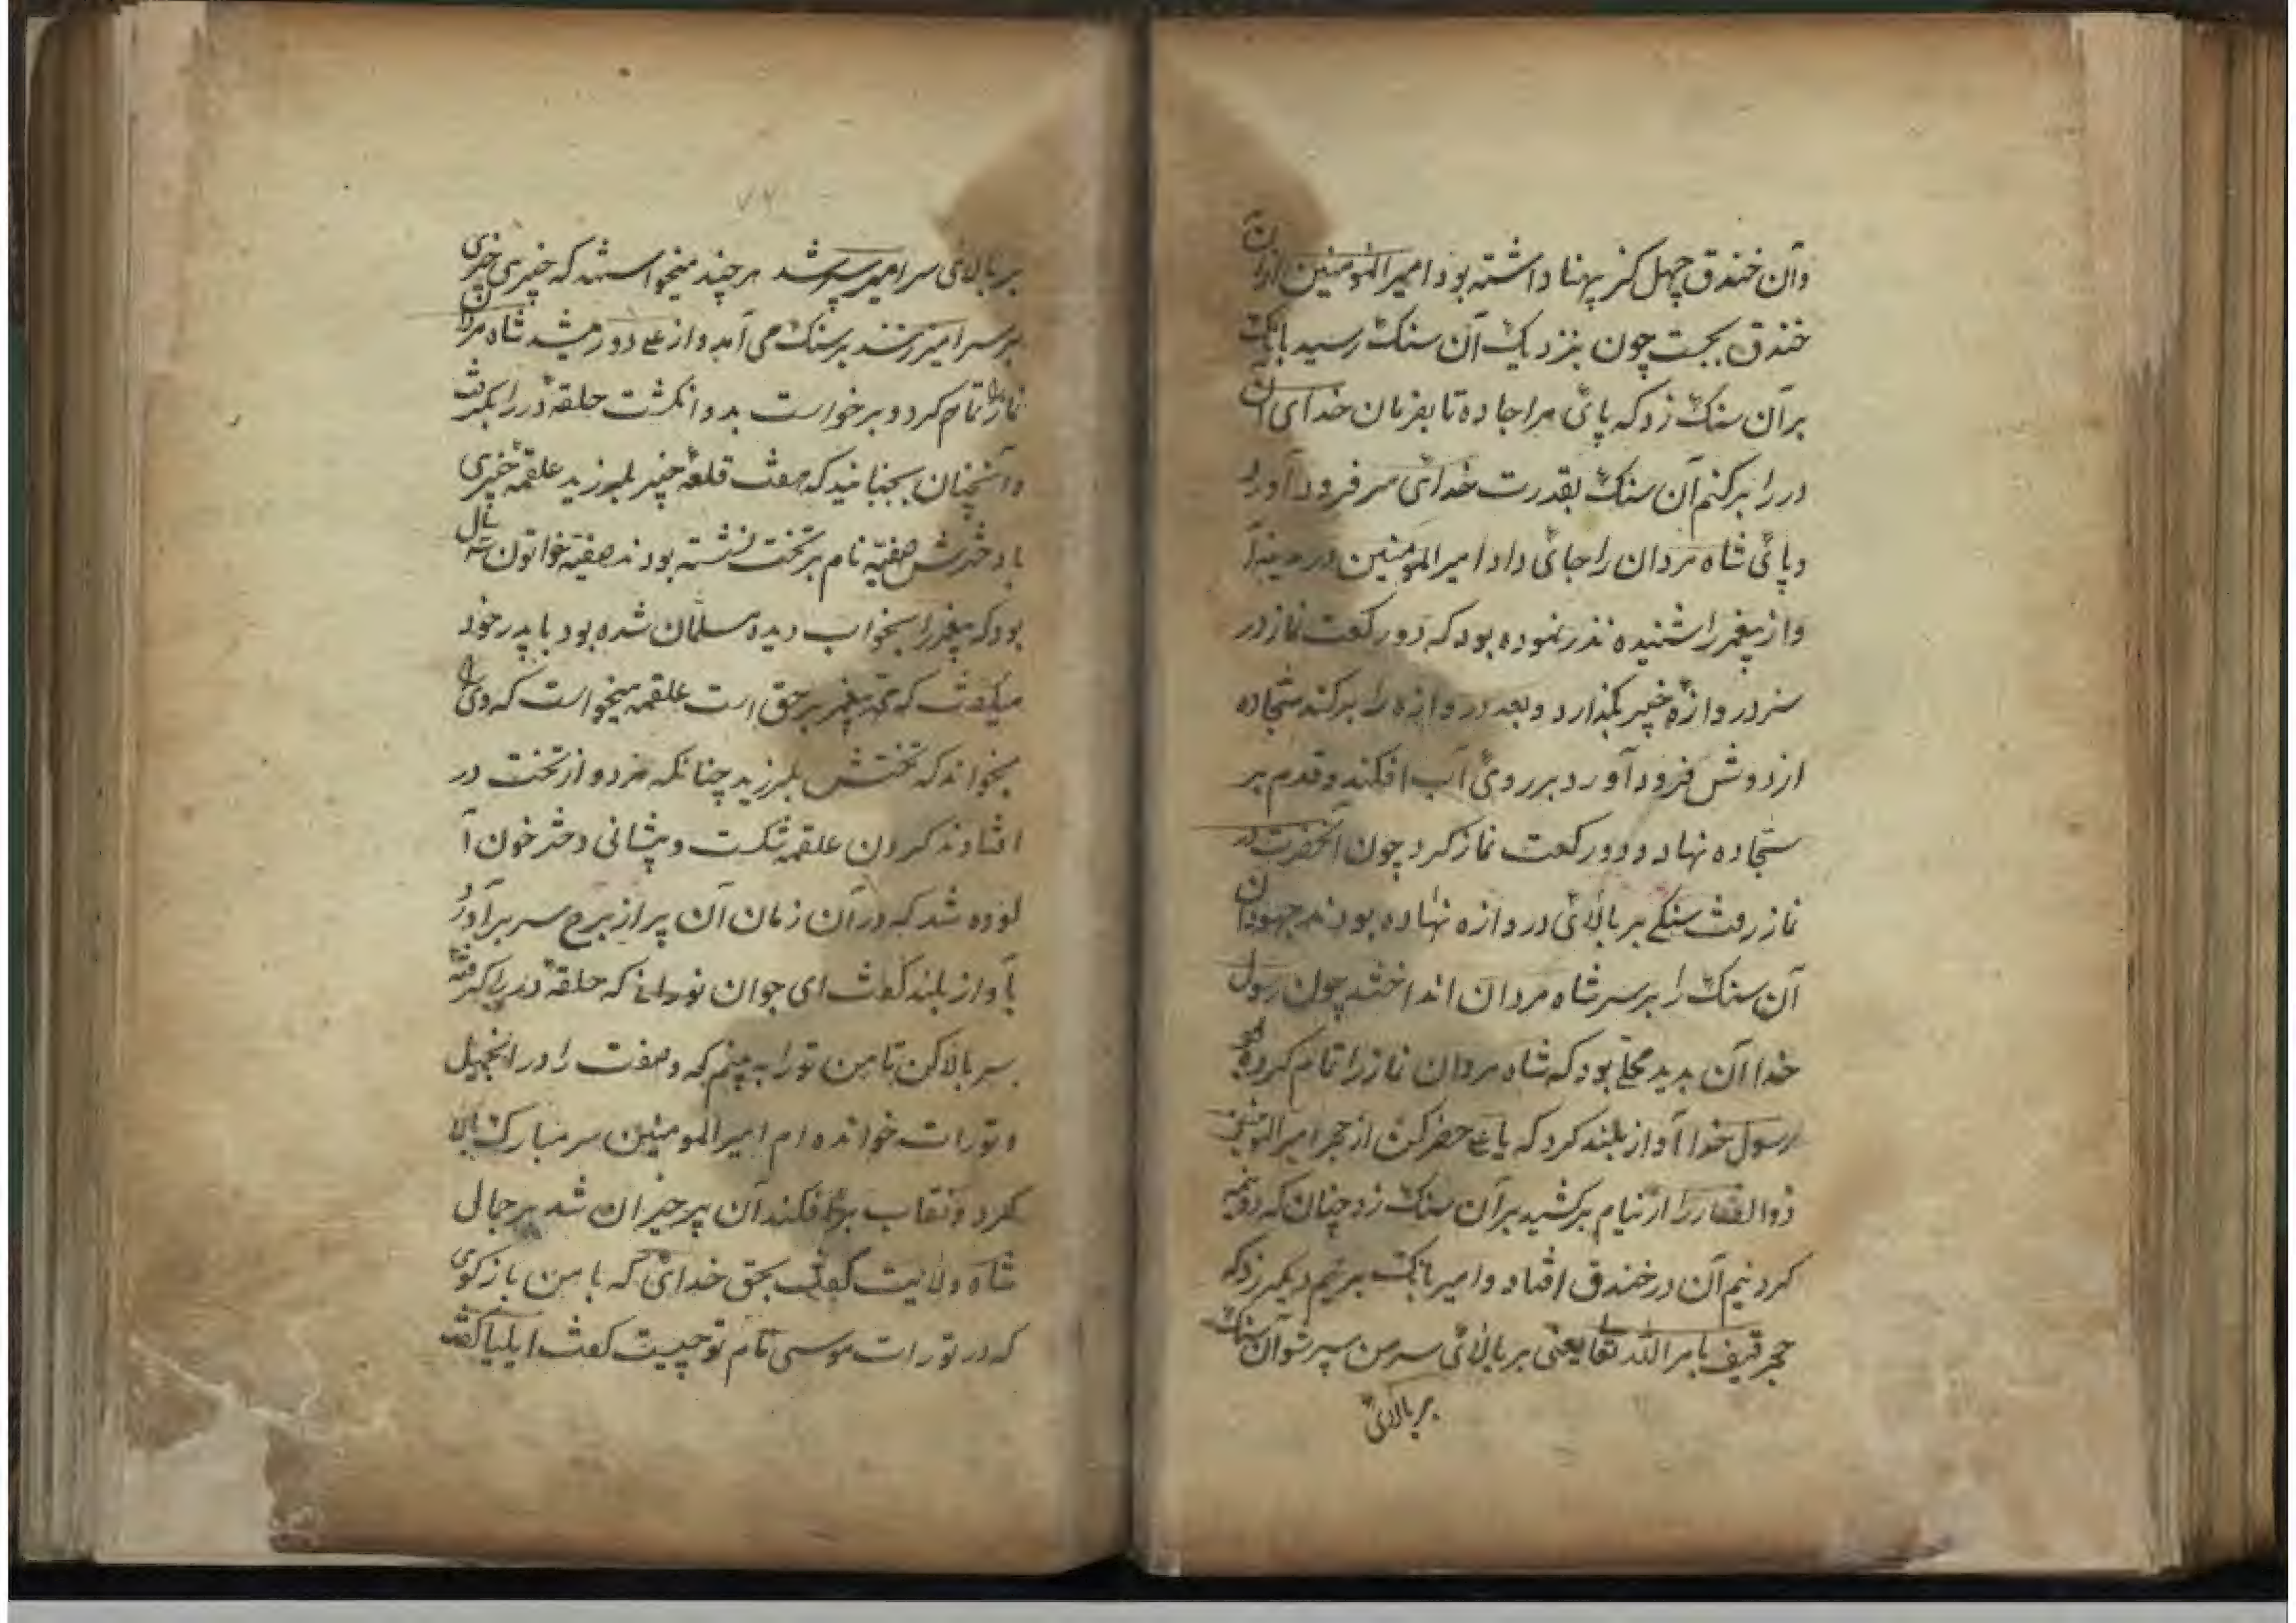 وآن خندق چهل کز پهنا داشته بود امیرالمومنین ازان
خندق بجست چون بنزدیک آن سنک رسید بانک
برآن سنک زد که پائ مرا جا ده تا بفرمان خدای آن
در را برکنم آن سنک بقدرت خدای سر فرود آورد
وپائ شاه مردان را جائ داد امیرالمومنین در مدینه
واز پیغمبر شنیده نذر نموده بود که دو رکعت نماز در
سر دروازه خیبر بکذارد وبعد دروازه را برکند سجاده
از دوش فرود آورد بر روئ آب افکند وقدم بر
سجاده نهاد ودو رکعت نماز کرد چون آنحضرت در
نماز رفت سنکی بر بالائ دروازه نهاده بودند جهودان
آن سنک را بر سر شاه مردان انداختند چون رسول
خدا آن بدید محلی بود که شاه مردان نماز را تمام کرده بود
رسول خدا آواز بلند کرد که یا علی حضر کن از حجر امیرالمومنین
ذوالفقار را از نیام برکشید برآن سنک زد چنان که دو نیمه
کرد نیم آن در خندق افتاد وامیر بانک بر نیم دیکر زد که
حجر قیف بامر الله تعا یعنی بر بالائ سر من سپر شو آن سنک
بر بالائ
۷۲
بر بالائ سر امیر سپر شد هر چند میخواستند که خیبری
بر سر امیر زنند بر سنک می آمد واز علی دور میشد شاه مردان
نماز را تمام کرد وبرخواست بدو انکشت حلقه در را بکرفت
وآنچنان بجنبانید که هفت قلعه خیبر بلرزید علقمه خیبری
با دخترش صفیه نام بر تخت نشسته بودند صفیه خواتون سه سال
بود که پیغمبر را بخواب دیده مسلمان شده بود با پدر خود
میکفت که محمد پیغمبر بر حق است علقمه میخواست که وی را
بخواند که تختش بلرزید چنانکه هر دو از تخت در
افتادند کردن علقمه شکست وپیشانی دختر خون آ
لوده شد که در آن زمان آن پیر از برج سر برآورد
بآواز بلند کفت ای جوان نورانی که حلقه در را کرفته
سر بالا کن تا من تورا به بینم که وصفت را در انجیل
وتورات خوانده ام امیرالمومنین سر مبارک بالا
کرد ونقاب برافکند آن پیر حیران شد بر جمال
شاه ولایت گفت بحق خدائ که با من باز کوی
که در تورات موسی نام تو چیست کفت ایلیا کفت